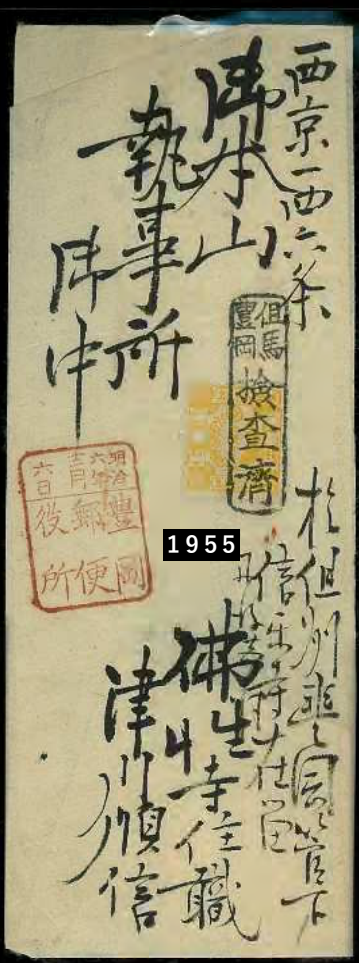 西京西六条
御本山
執事所
御中
但馬
豊岡
検査済
明治
六年
十二月
六日
豊岡
郵便
役所
1955
於但州豊岡管下
佛生寺住職
津川順信